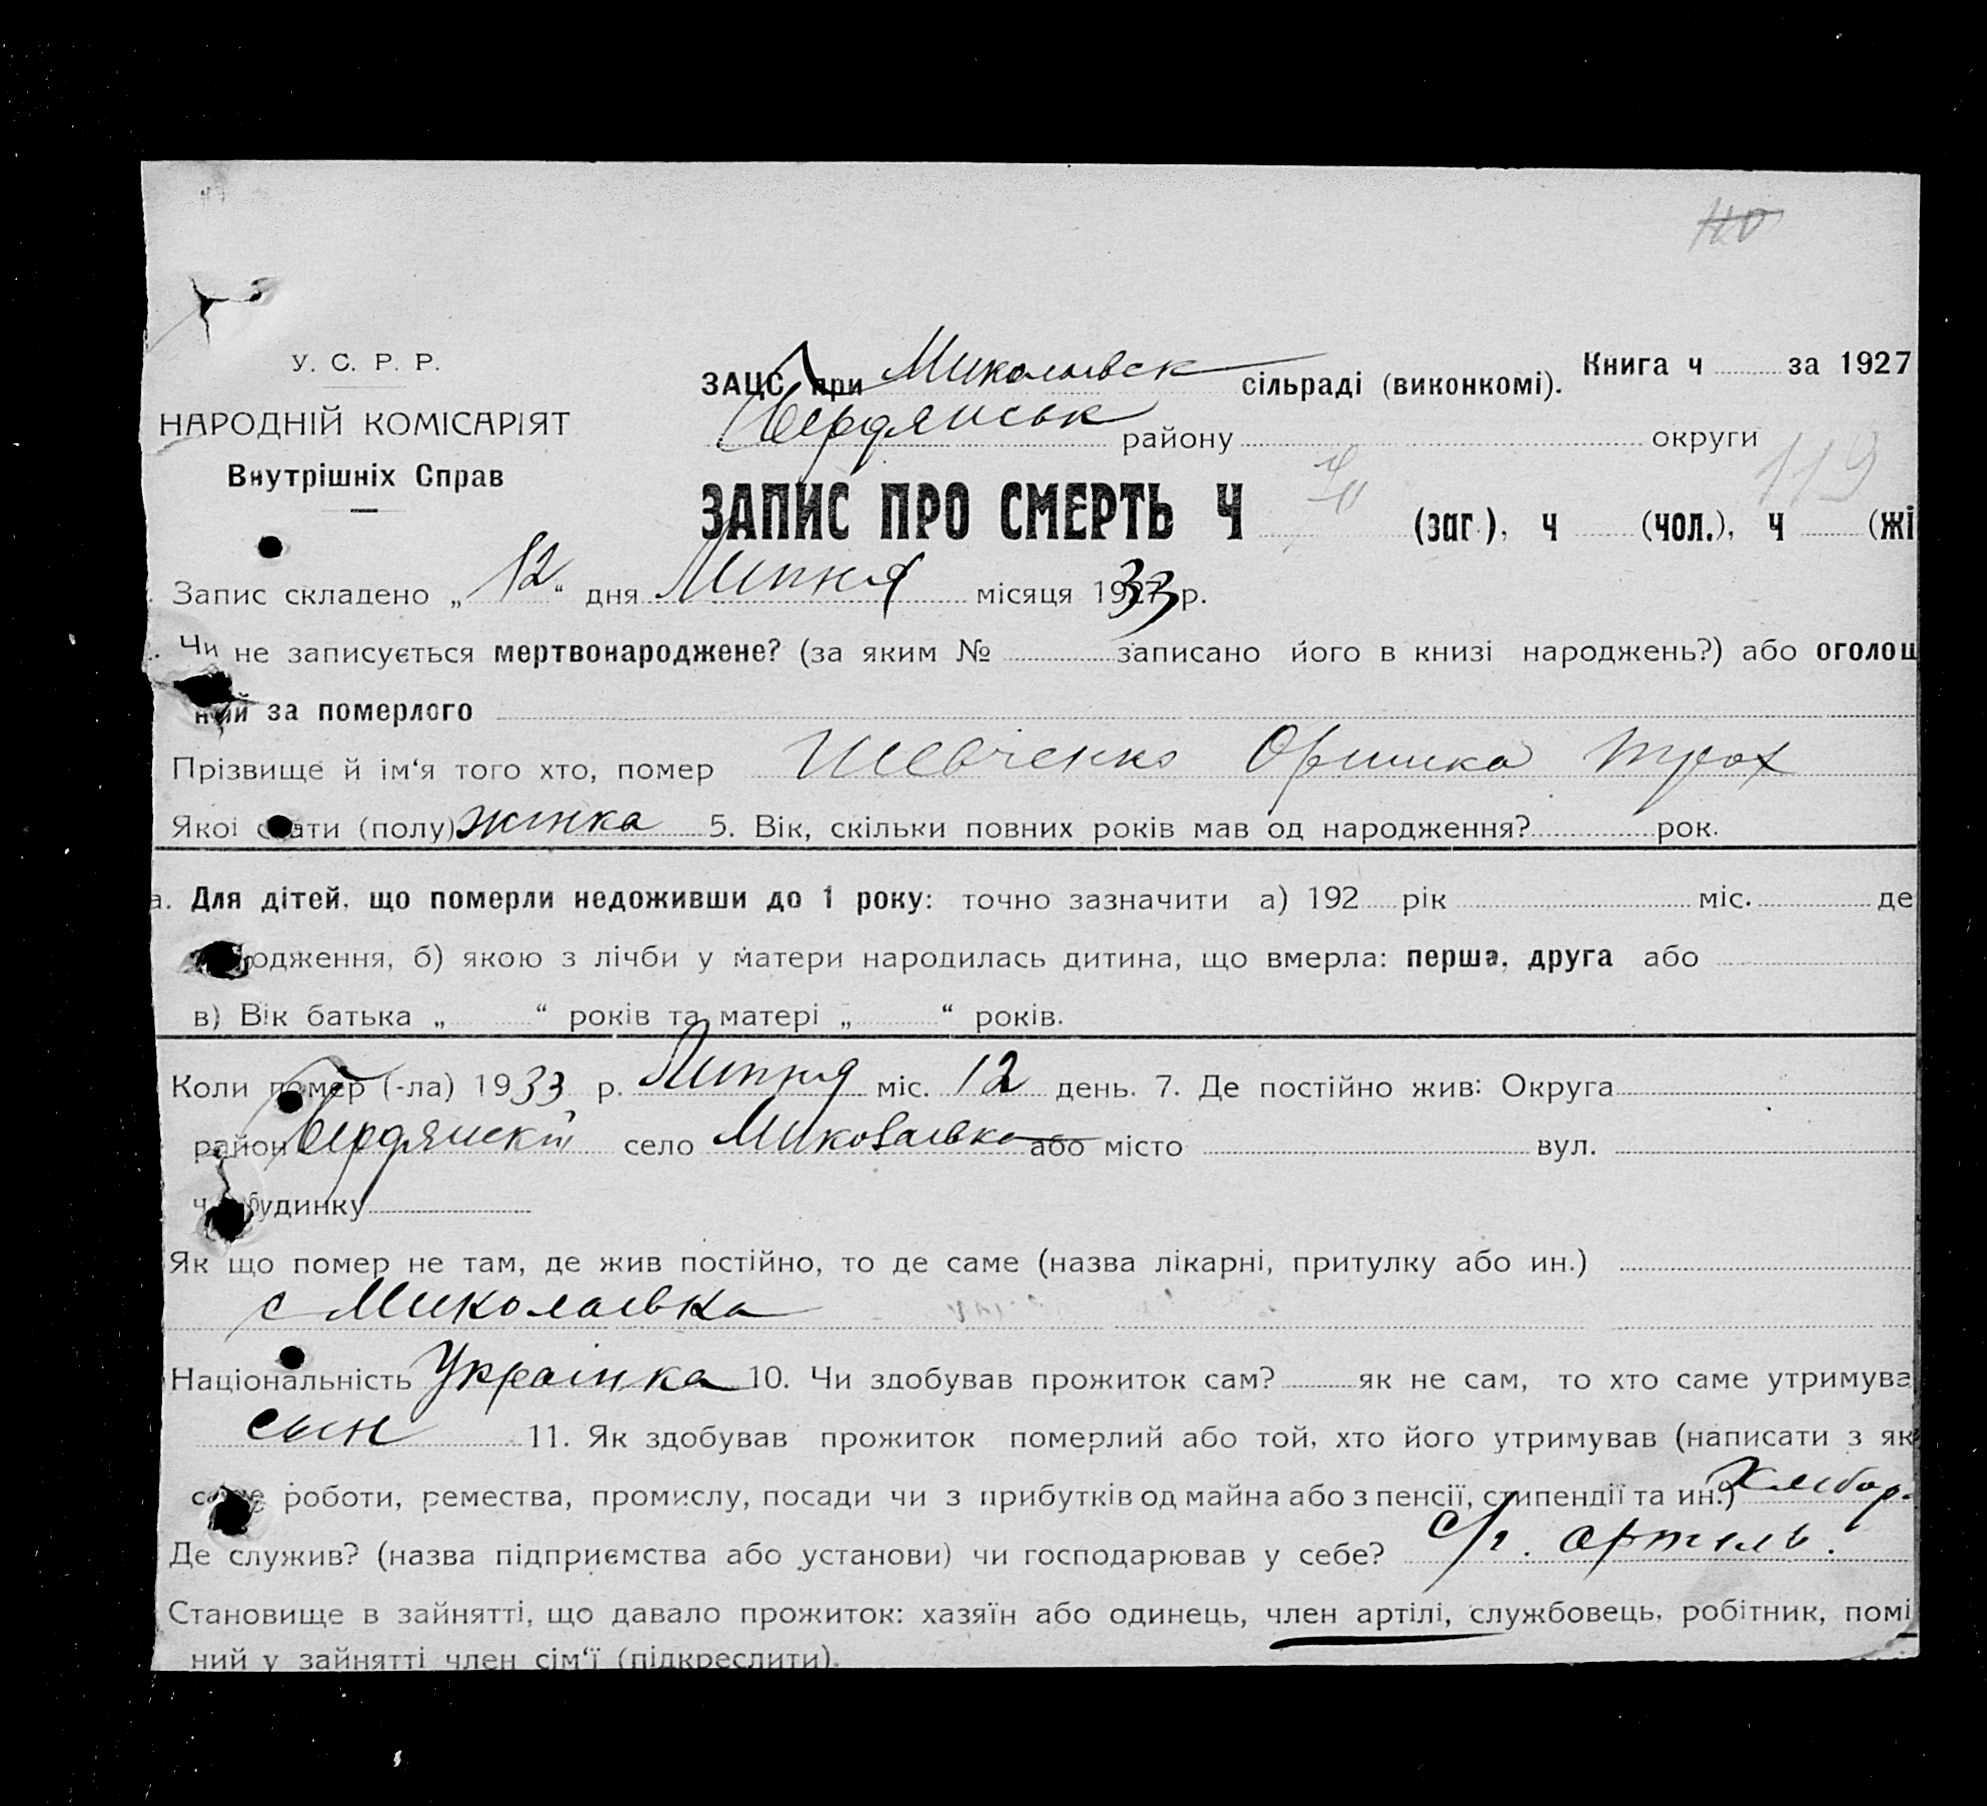 110
У. С. Р. Р.
НАРОДНІЙ КОМІСАРІЯТ
Внутрішніх Справ
ЗАЦС при Миколаевск сільраді (виконкомі). Книга ч за 1927
Бердянськ району округи
ЗАПИС ПРО СМЕРТЬ Ч (заг.), ч (чол.), ч 119 (жі
Запис складено „ 12 “ дня Липня місяця 1933 р.
Чи не записується мертвонароджене? (за яким № записано його в книзі народжень?) або оголош
ний за померлого
Прізвище й ім‘я того хто, помер Шевченко Оришка Трох
Якоі стати (полу) жінка 5. Вік, скільки повних років мав од народження? рок.
а. Для дітей, що померли недоживши до 1 року: точно зазначити а) 192 рік міс. де
одження, б) якою з лічби у матери народилась дитина, що вмерла: перша, друга або
в) Вік батька „ “ років та матері „ “ років.
Коли помер (-ла) 1933 р. Липня міс. 12 день. 7. Де постійно жив: Округа
район Бердянский село Миколаевка або місто вул.
ч будинку
Як що помер не там, де жив постійно, то де саме (назва лікарні, притулку або ин.)
с Миколаевка
Національність Українка 10. Чи здобував прожиток сам? як не сам, то хто саме утримува
сын 11. Як здобував прожиток померлий або той, хто його утримував (написати з як
саме роботи, ремества, промислу, посади чи з прибутків од майна або з пенсії, стипендії та ин.) Хлибор.
Де служив? (назва підприємства або установи) чи господарював у себе? с/г. артель.
Становище в зайнятті, що давало прожиток: хазяїн або одинець, член артілі, службовець, робітник, помі
ний у зайнятті член сім‘ї (підкреслити).